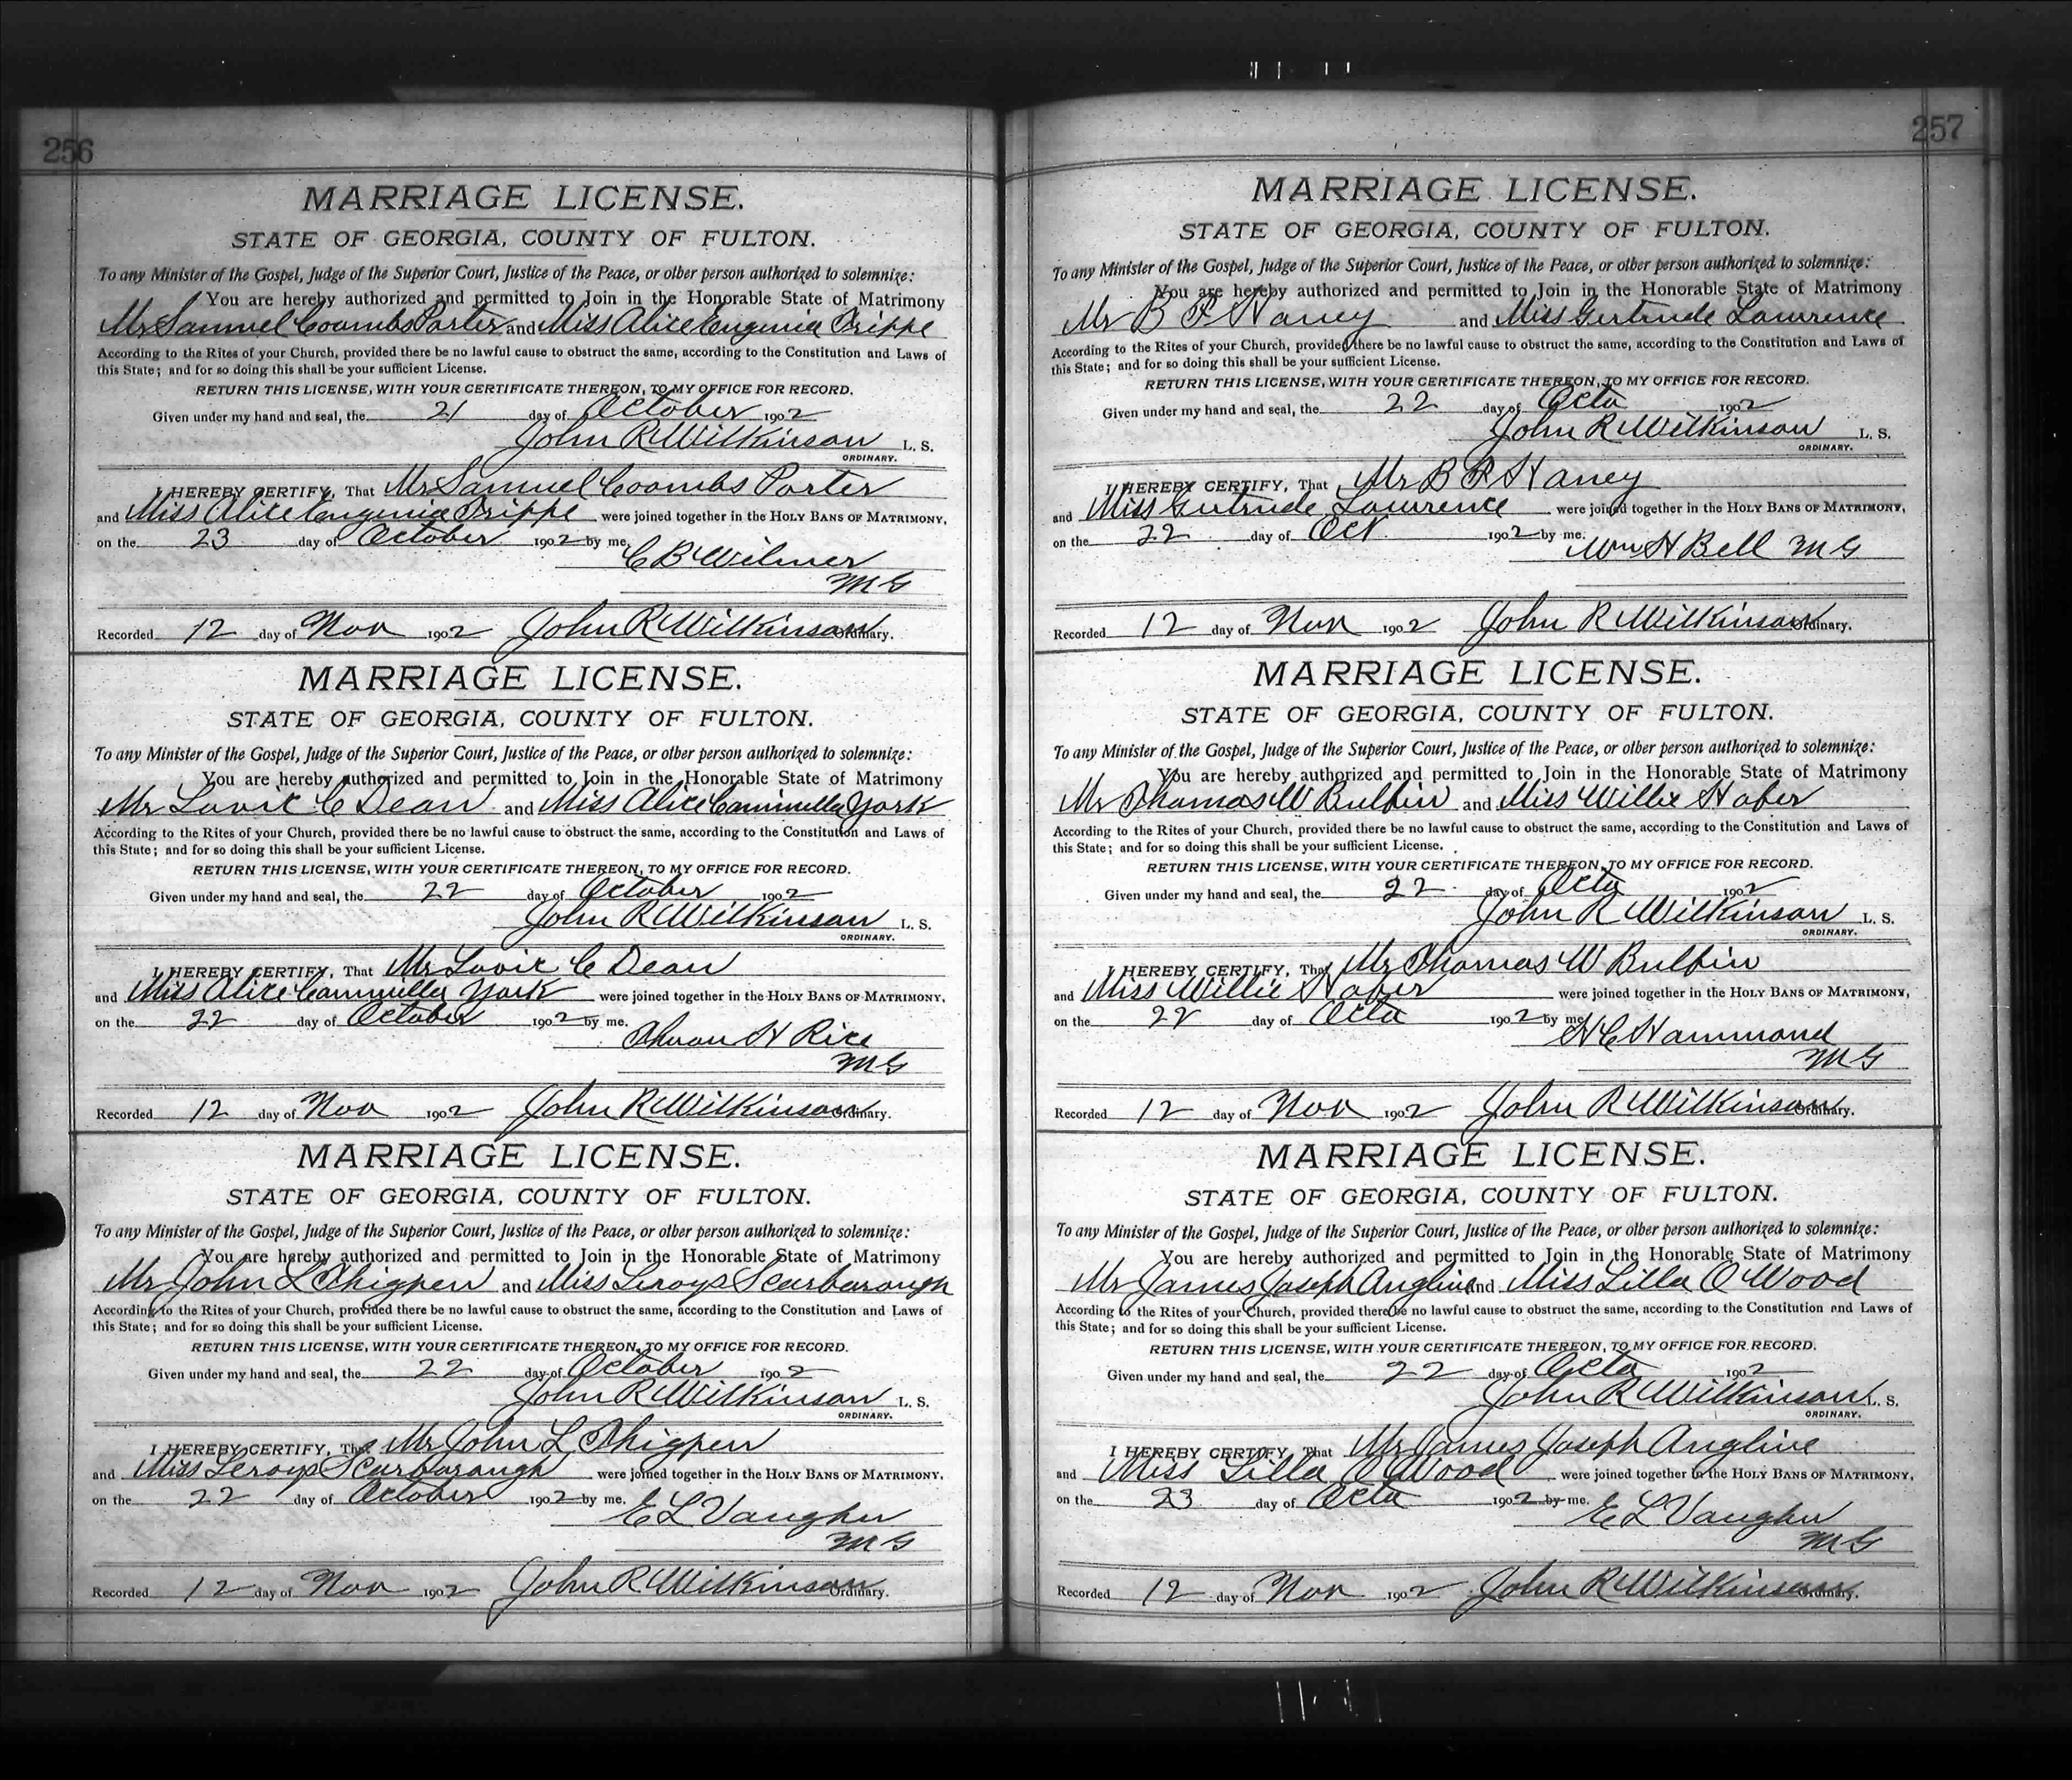 256
MARRIAGE LICENSE.
STATE OF GEORGIA, COUNTY OF FULTON.
To any Minister of the Gospel, Judge of the Superior Court, Justice of the Peace, or other person authorized to solemnize:
You are hereby authorized and permitted to Join in the Honorable State of Matrimony
Mr Samuel Coombs Porter and Miss Alice Eugenia Trippe
According to the Rites of your Church, provided there be no lawful cause to obstruct the same, according to the Constitution and Laws of
this State; and for so doing this shall be your sufficient License.
RETURN THIS LICENSE, WITH YOUR CERTIFICATE THEREON, TO MY OFFICE FOR RECORD.
Given under my hand and seal, the 21 day of October 1902
John R Wilkinson L. S.
ORDINARY.
I HEREBY CERTIFY, That Mr Samuel Coombs Porter
and Miss Alice Eugenia Trippe were joined together in the HOLY BANS OF MATRIMONY,
on the 23 day of October 1902 by me.
C B Wilmer
M G
Recorded 12 day of Nov 1902 John R Wilkinson Ordinary.
MARRIAGE LICENSE.
STATE OF GEORGIA, COUNTY OF FULTON.
To any Minister of the Gospel, Judge of the Superior Court, Justice of the Peace, or other person authorized to solemnize:
You are hereby authorized and permitted to Join in the Honorable State of Matrimony
Mr Lovic C Dean and Miss Alice Cammilla York
According to the Rites of your Church, provided there be no lawful cause to obstruct the same, according to the Constitution and Laws of
this State; and for so doing this shall be your sufficient License.
RETURN THIS LICENSE, WITH YOUR CERTIFICATE THEREON, TO MY OFFICE FOR RECORD.
Given under my hand and seal, the 22 day of October 1902
John R Wilkinson L. S.
ORDINARY.
I HEREBY CERTIFY, That Mr Lovic C Dean
and Miss Alice Cammilla York were joined together in the HOLY BANS OF MATRIMONY,
on the 22 day of October 1902 by me.
H Rice
M G
Recorded 12 day of Nov 1902 John R Wilkinson Ordinary.
MARRIAGE LICENSE.
STATE OF GEORGIA, COUNTY OF FULTON.
To any Minister of the Gospel, Judge of the Superior Court, Justice of the Peace, or other person authorized to solemnize:
You are hereby authorized and permitted to Join in the Honorable State of Matrimony
Mr John L Thigpen and Miss Leroys Scarborough
According to the Rites of your Church, provided there be no lawful cause to obstruct the same, according to the Constitution and Laws of
this State; and for so doing this shall be your sufficient License.
RETURN THIS LICENSE, WITH YOUR CERTIFICATE THEREON, TO MY OFFICE FOR RECORD.
Given under my hand and seal, the 22 day of October 1902
John R Wilkinson L. S.
ORDINARY.
I HEREBY CERTIFY, That Mr John L Thigpen
and Miss Leroys Scarborough were joined together in the HOLY BANS OF MATRIMONY,
on the 22 day of October 1902 by me.
E L Vaughn
M G
Recorded 12 day of Nov 1902 John R Wilkinson Ordinary.
257
MARRIAGE LICENSE.
STATE OF GEORGIA, COUNTY OF FULTON.
To any Minister of the Gospel, Judge of the Superior Court, Justice of the Peace, or other person authorized to solemnize:
You are hereby authorized and permitted to Join in the Honorable State of Matrimony
Mr B F Haney and Miss Gertrude Lawrence
According to the Rites of your Church, provided there be no lawful cause to obstruct the same, according to the Constitution and Laws of
this State; and for so doing this shall be your sufficient License.
RETURN THIS LICENSE, WITH YOUR CERTIFICATE THEREON, TO MY OFFICE FOR RECORD.
Given under my hand and seal, the 22 day of Octo 1902
John R Wilkinson L. S.
ORDINARY.
I HEREBY CERTIFY, That Mr B F Haney
and Miss Gertrude Lawrence were joined together in the HOLY BANS OF MATRIMONY,
on the 22 day of Oct 1902 by me.
Wm H Bell M G
Recorded 12 day of Nov 1902 John R Wilkinson Ordinary.
MARRIAGE LICENSE.
STATE OF GEORGIA, COUNTY OF FULTON.
To any Minister of the Gospel, Judge of the Superior Court, Justice of the Peace, or other person authorized to solemnize:
You are hereby authorized and permitted to Join in the Honorable State of Matrimony
Mr Thomas W Bulfin and Miss Willie Hafer
According to the Rites of your Church, provided there be no lawful cause to obstruct the same, according to the Constitution and Laws of
this State; and for so doing this shall be your sufficient License.
RETURN THIS LICENSE, WITH YOUR CERTIFICATE THEREON, TO MY OFFICE FOR RECORD.
Given under my hand and seal, the 22 day of Octo 1902
John R Wilkinson L. S.
ORDINARY.
I HEREBY CERTIFY, That Mr Thomas W Bulfin
and Miss Willie Hafer were joined together in the HOLY BANS OF MATRIMONY,
on the 22 day of Octo 1902 by me.
H C Hammond
M G
Recorded 12 day of Nov 1902 John R Wilkinson Ordinary.
MARRIAGE LICENSE.
STATE OF GEORGIA, COUNTY OF FULTON.
To any Minister of the Gospel, Judge of the Superior Court, Justice of the Peace, or other person authorized to solemnize:
You are hereby authorized and permitted to Join in the Honorable State of Matrimony
Mr James Joseph Angline and Miss Lilla O Wood
According to the Rites of your Church, provided there be no lawful cause to obstruct the same, according to the Constitution and Laws of
this State; and for so doing this shall be your sufficient License.
RETURN THIS LICENSE, WITH YOUR CERTIFICATE THEREON, TO MY OFFICE FOR RECORD.
Given under my hand and seal, the 22 day of Octo 1902
John R Wilkinson L. S.
ORDINARY.
I HEREBY CERTIFY, That Mr James Joseph Angline
and Miss Lilla O Wood were joined together in the HOLY BANS OF MATRIMONY,
on the 23 day of Octo 1902 by me.
E L Vaughn
M G
Recorded 12 day of Nov 1902 John R Wilkinson Ordinary.